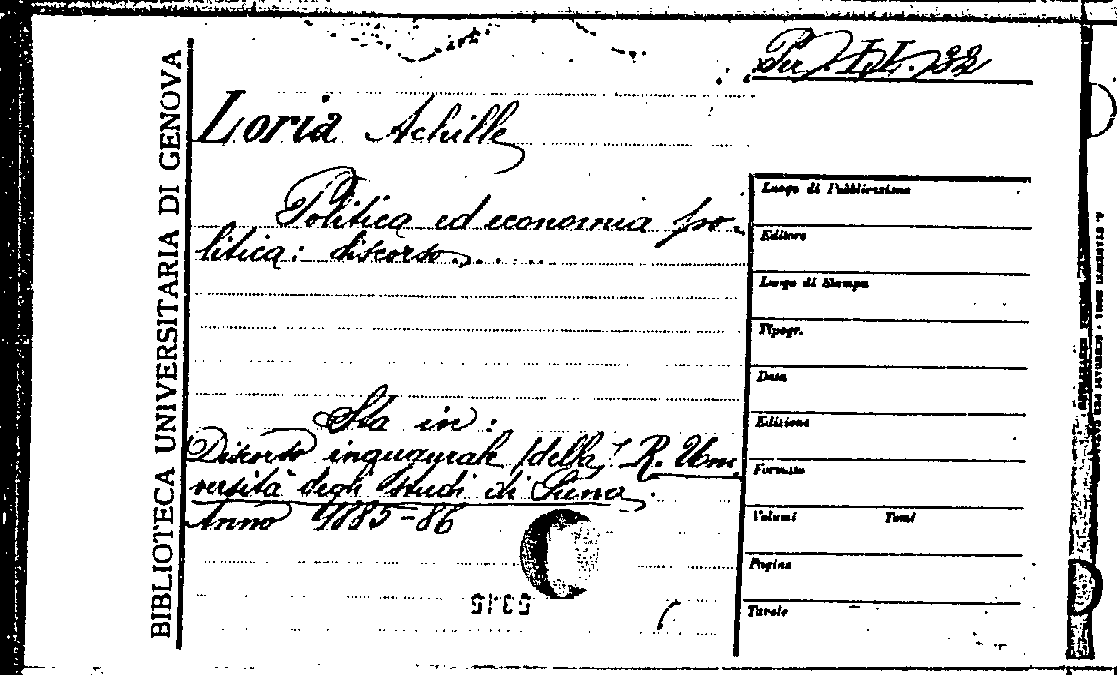 BIBLIOTECA UNIVERSITARIA DI GENOVA
Per. II. 32
Loria Achille
Politica ed economia po-
litica: discorso.....
Sta in:
Discorso inaugurale della R. Uni
versità degli studi di Siena.
Anno 1885-86
5315
Luogo di Pubblicazione
Editore
Luogo di Stampa
Tipogr.
Data
Edizione
Formato
Volumi Tomi
Pagine
Tavole